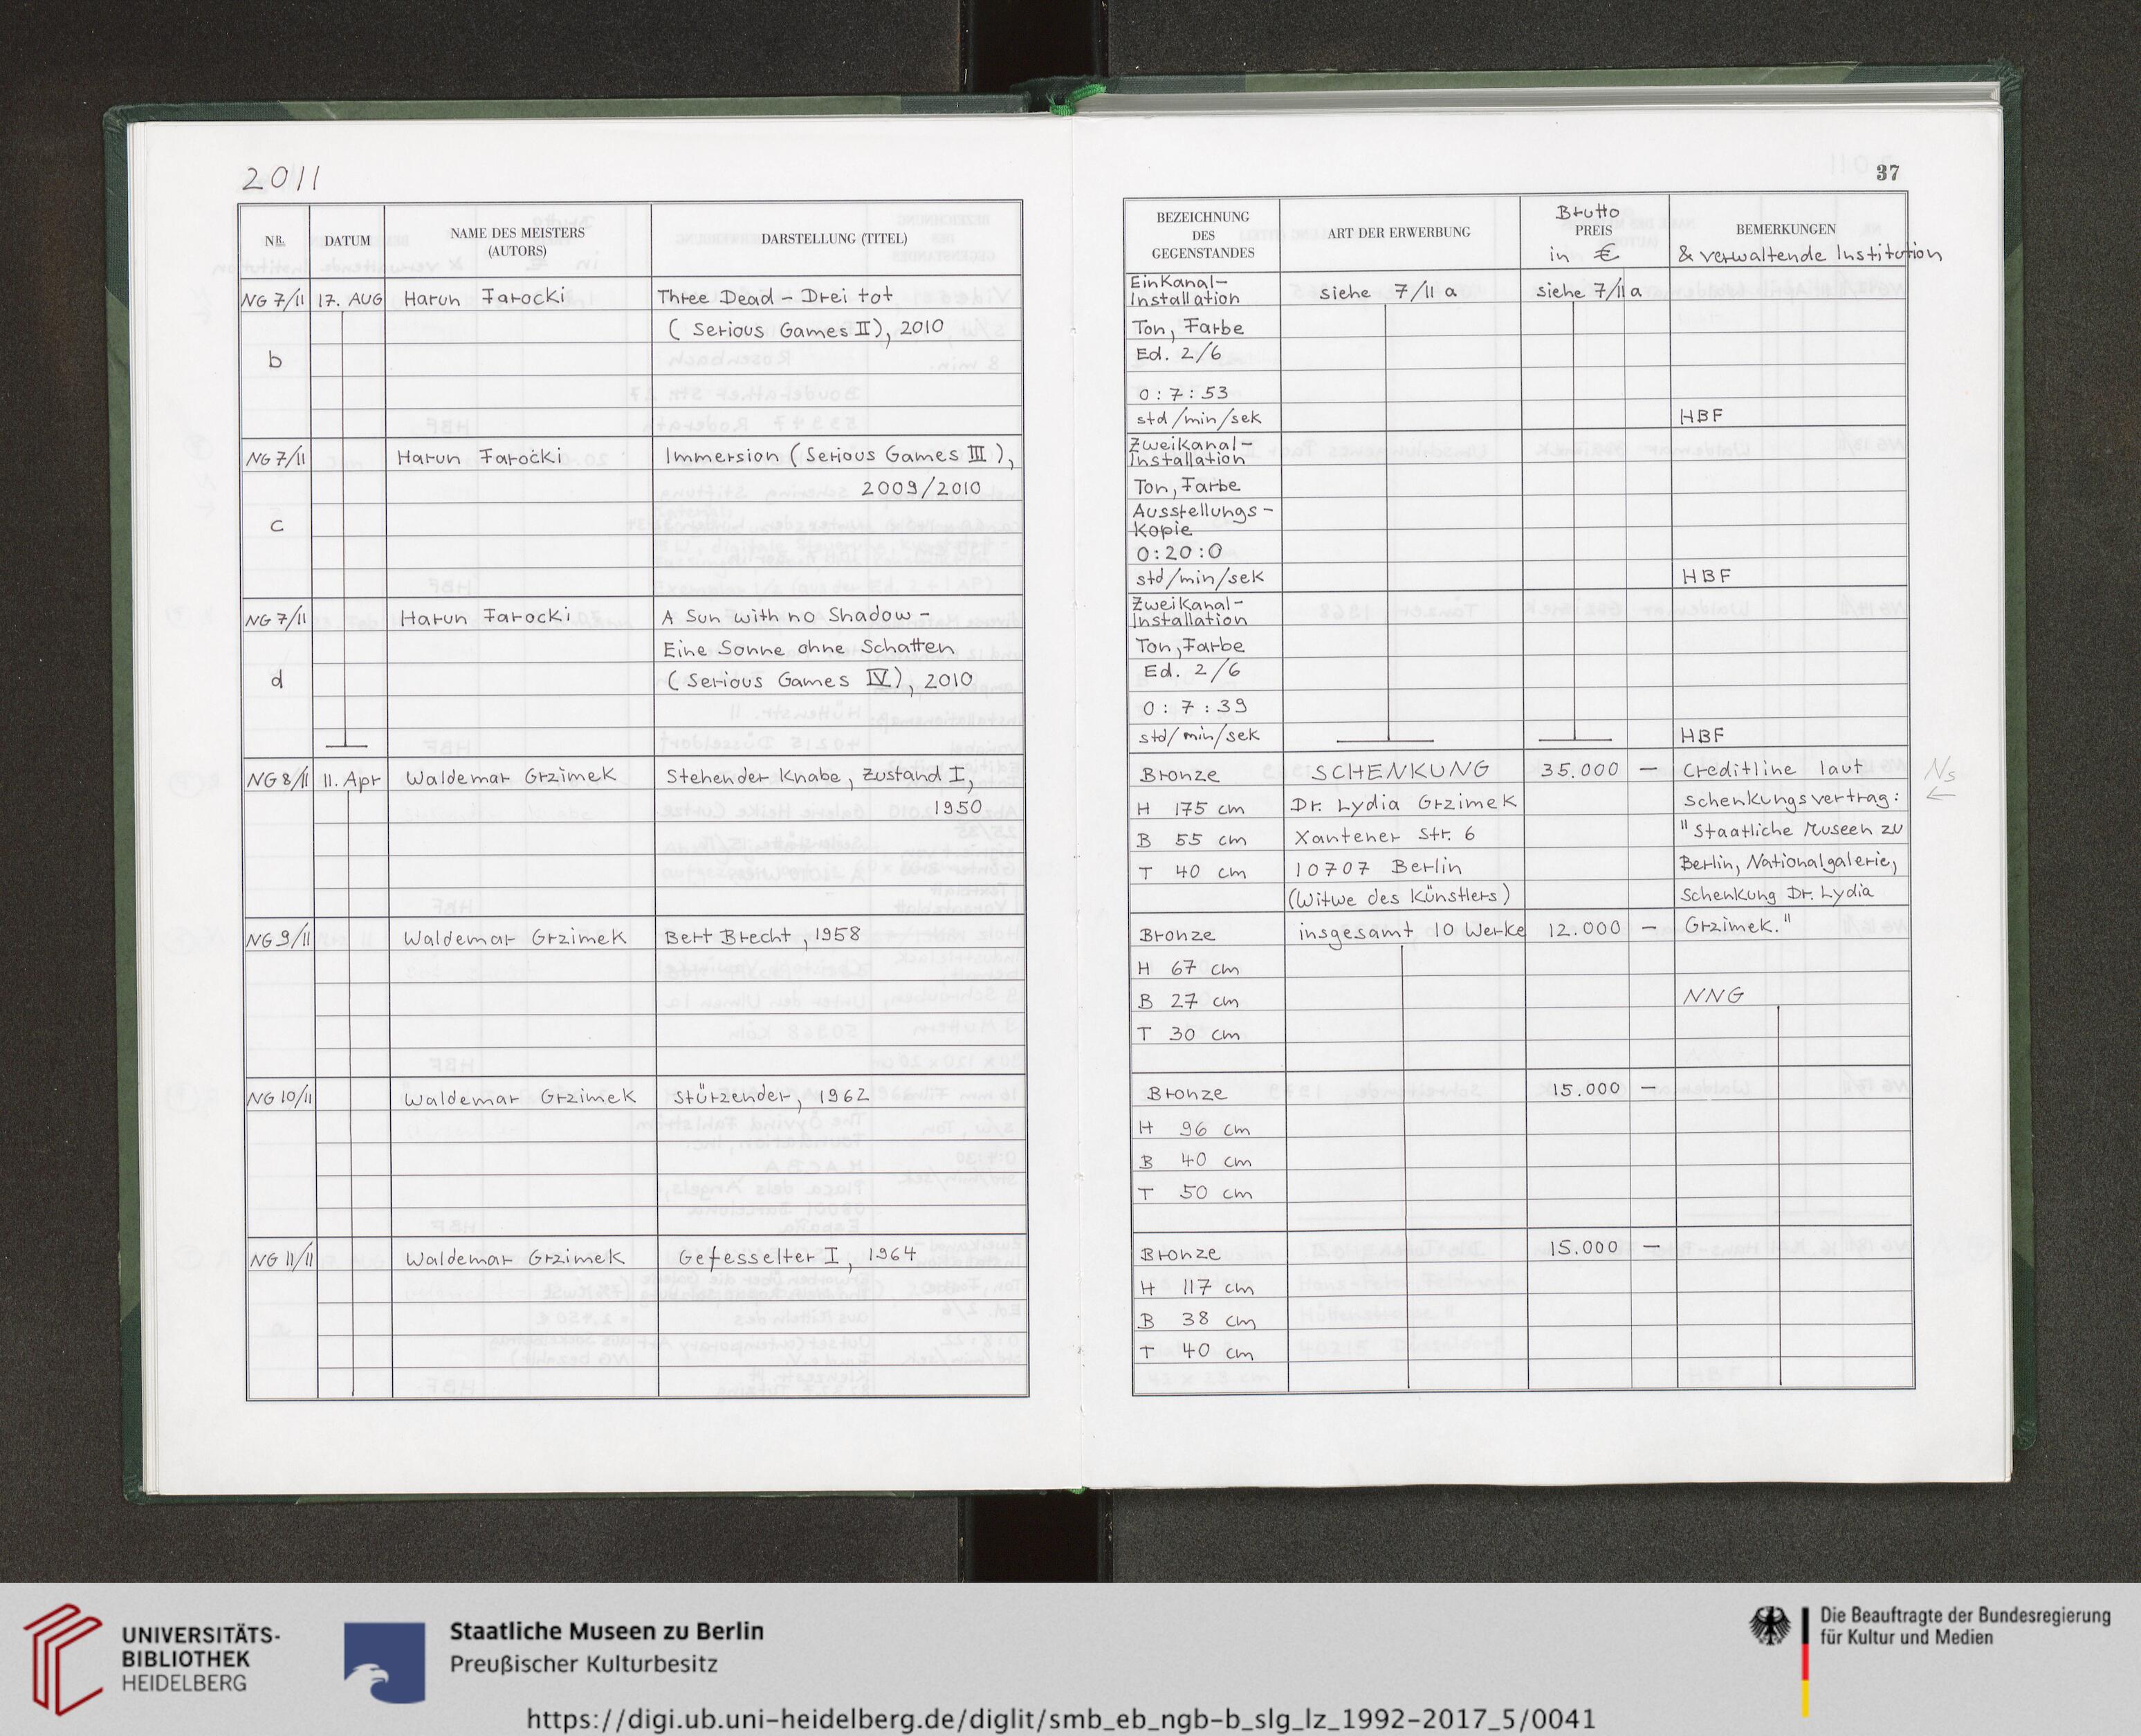 2011
NR.
DATUM
NAME DES MEISTERS
(AUTORS)
DARSTELLUNG (TITEL)
NG 7/11
17. AUG
Harun Farocki
Three Dead – Drei tot
(Serious Games II), 2010
b
NG 7/11
Harun Farocki
Immersion (Serious Games III),
2009/2010
c
NG 7/11
Harun Farocki
A Sun with no Shadow –
Eine Sonne ohne Schatten
(Serious Games IV), 2010
d
NG 8/11
11. Apr
Waldemar Grzimek
Stehender Knabe, Zustand I,
1950
NG 9/11
Waldemar Grzimek
Bert Brecht, 1958
NG 10/11
Waldemar Grzimek
Stürzender, 1962
NG 11/11
Waldemar Grzimek
Gefesselter I, 1964
37
BEZEICHNUNG
DES
GEGENSTANDES
ART DER ERWERBUNG
Brutto
PREIS
in €
BEMERKUNGEN
& verwaltende Institution
Einkanal-
Installation
siehe 7/11 a
siehe 7/11 a
Ton, Farbe
Ed. 2/6
0 : 7 : 53
std/min/sek
HBF
Zweikanal-
Installation
Ton, Farbe
Ausstellungs-
kopie
0 : 20 : 0
std/min/sek
HBF
Zweikanal-
Installation
Ton, Farbe
Ed. 2/6
0 : 7 : 39
std/min/sek
HBF
Bronze
SCHENKUNG
35.000 –
Creditline laut
Ns
H 175 cm
Dr. Lydia Grzimek
Schenkungsvertrag:
←
B 55 cm
Xantener Str. 6
"Staatliche Museen zu
T 40 cm
10707 Berlin
Berlin, Nationalgalerie,
(Witwe des Künstlers)
Schenkung Dr. Lydia
Bronze
insgesamt 10 Werke
12.000 –
Grzimek."
H 67 cm
B 27 cm
NNG
T 30 cm
Bronze
15.000 –
H 96 cm
B 40 cm
T 50 cm
Bronze
15.000 –
H 117 cm
B 38 cm
T 40 cm
UNIVERSITÄTS-
BIBLIOTHEK
HEIDELBERG
Staatliche Museen zu Berlin
Preußischer Kulturbesitz
Die Beauftragte der Bundesregierung
für Kultur und Medien
https://digi.ub.uni-heidelberg.de/diglit/smb_eb_ngb-b_slg_lz_1992-2017_5/0041